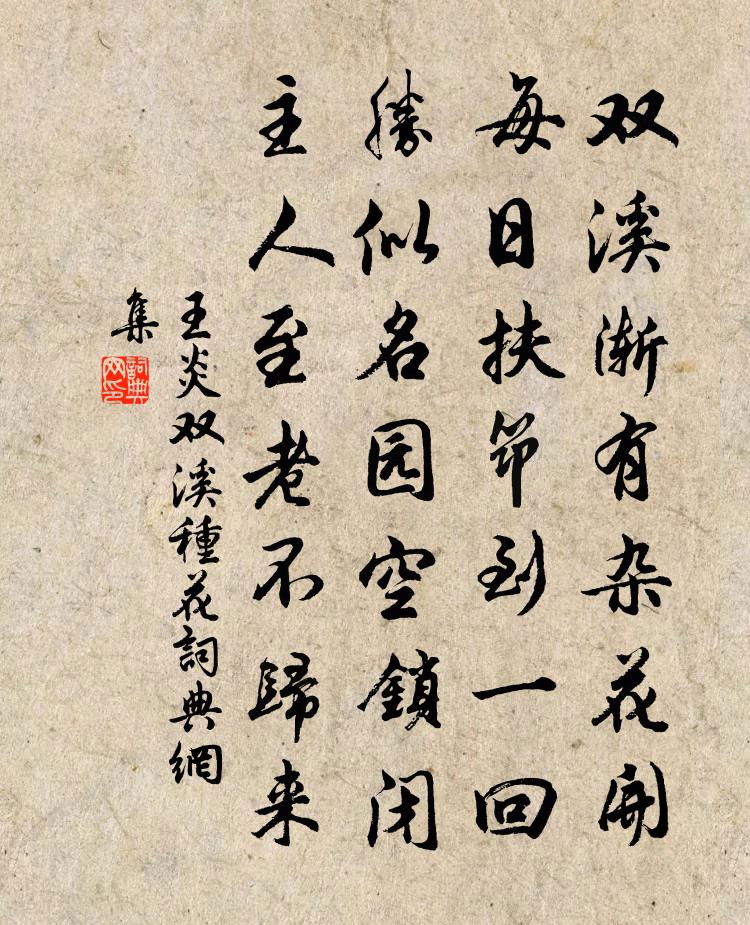 双溪渐有杂花開
每日扶筇到一回
勝似名园空鎖闭
主人至老不歸来
王炎双溪種花詞典網
集
詞典网印